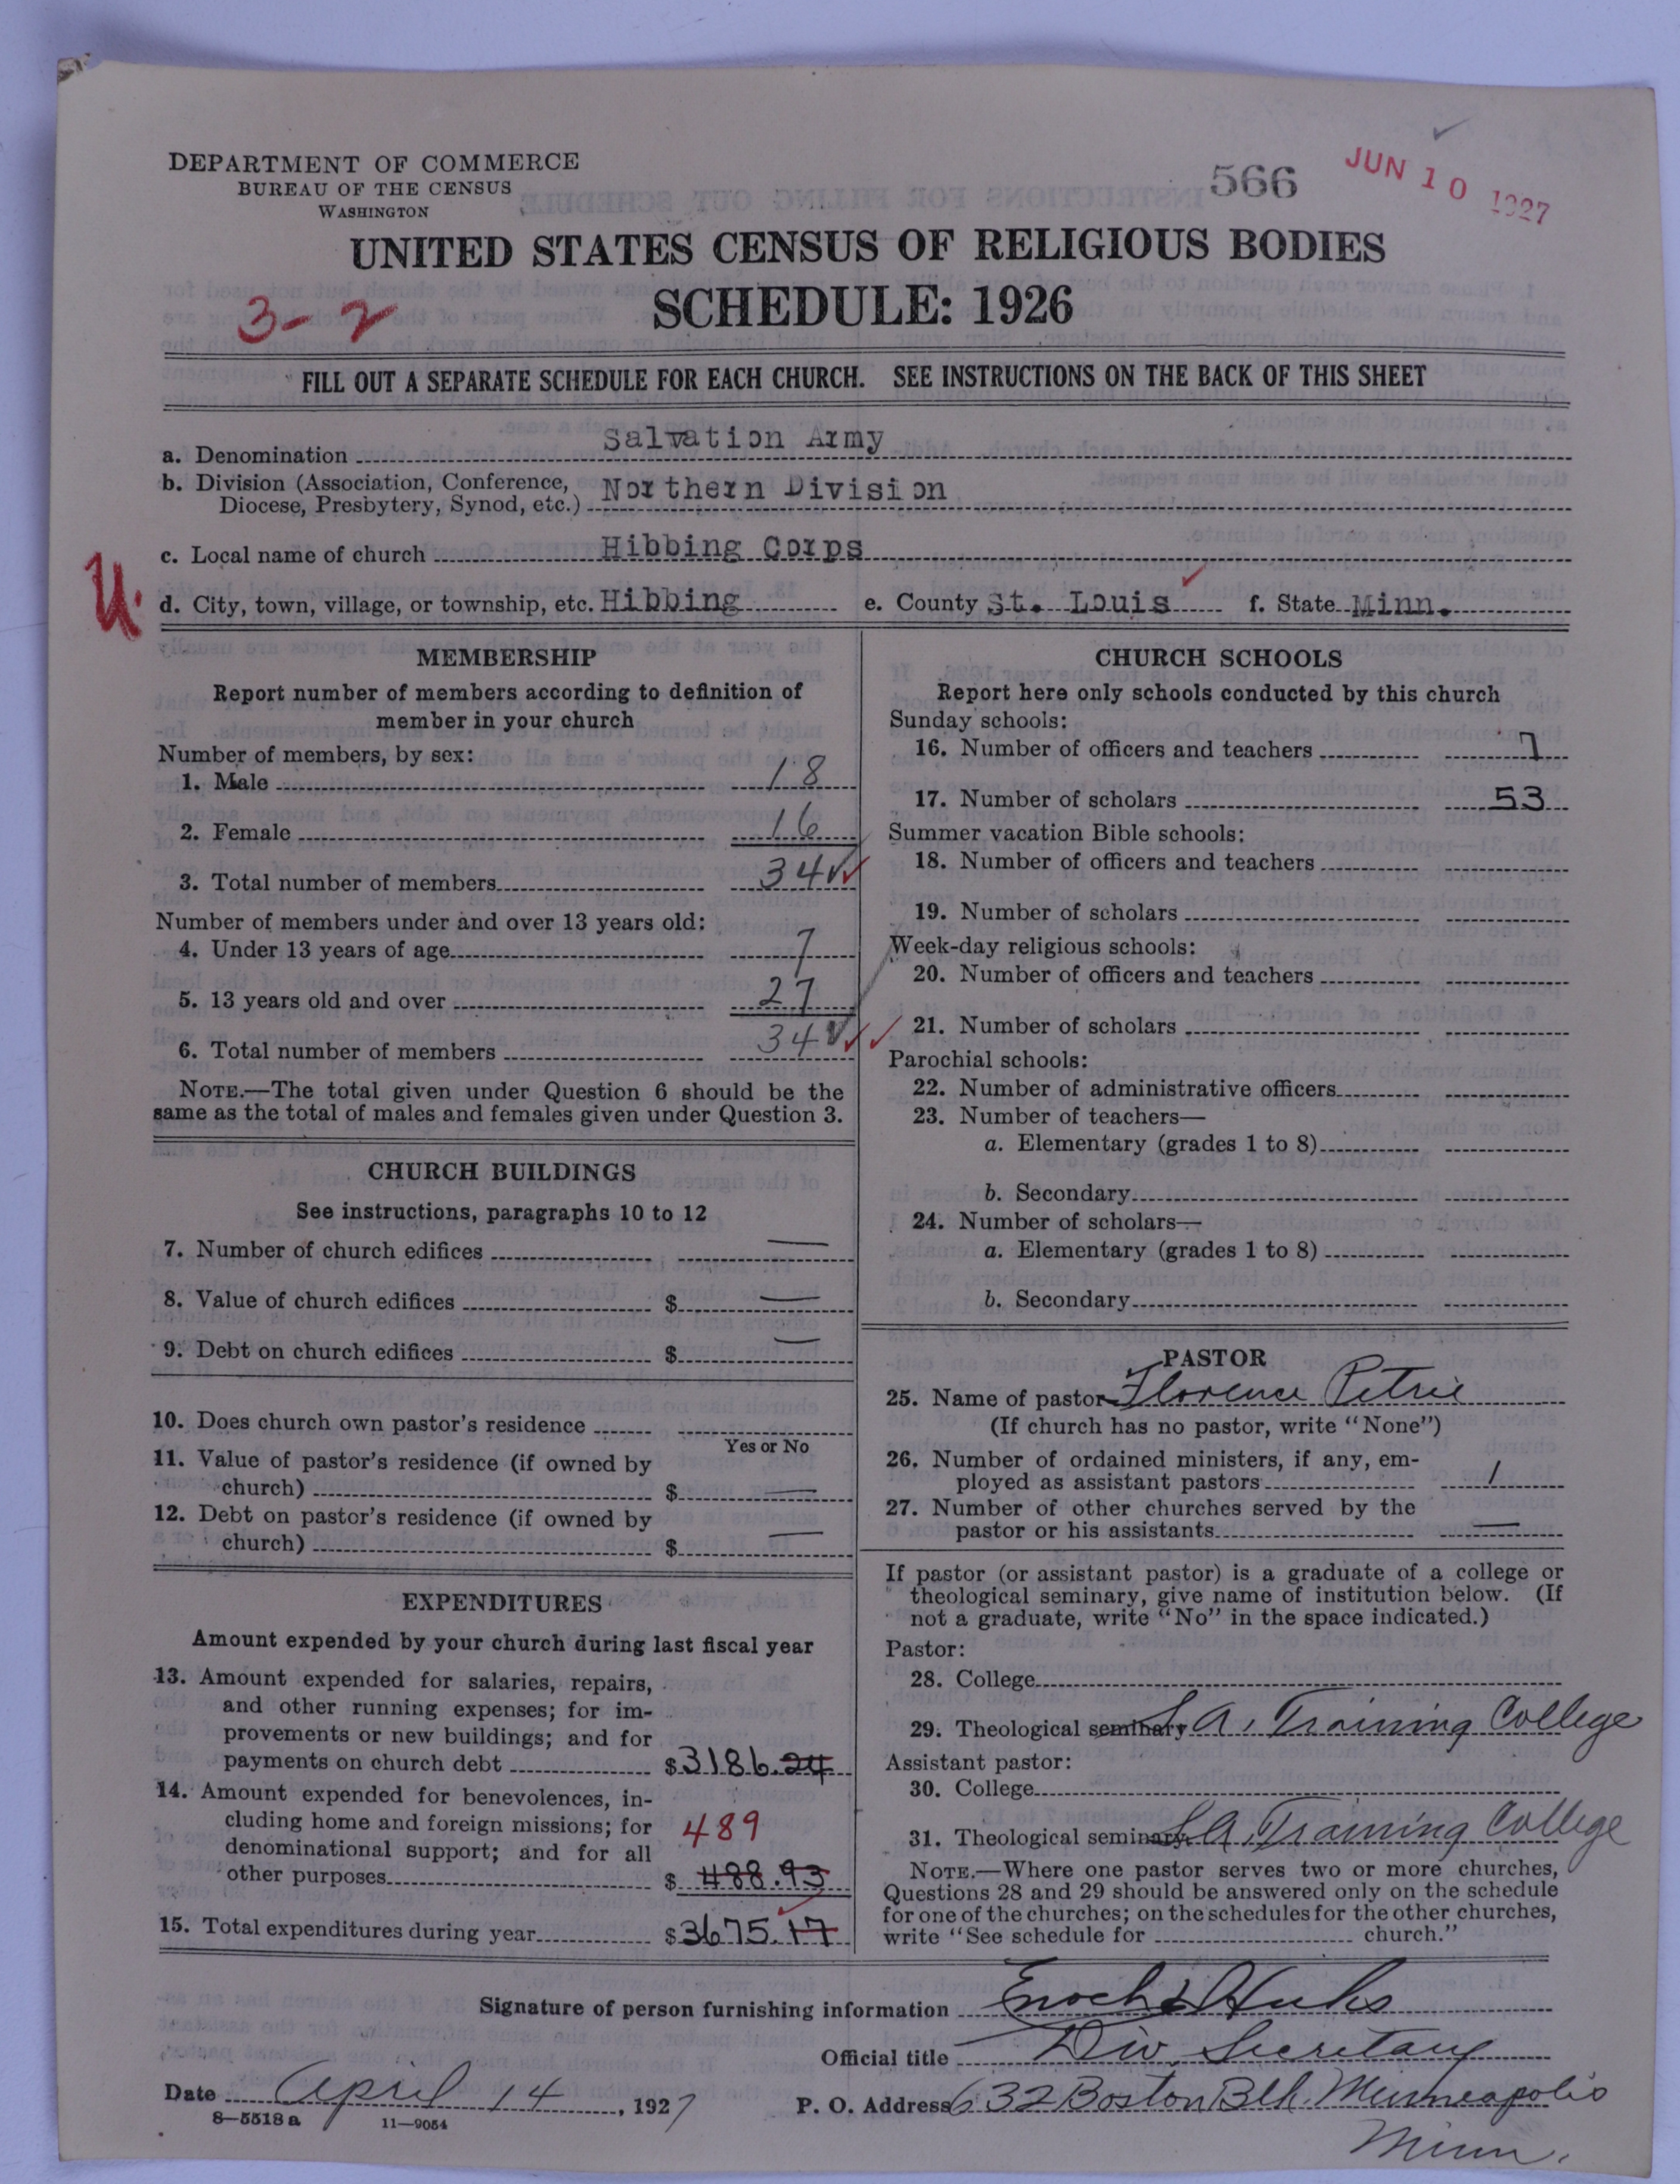 DEPARTMENT OF COMMERCE
BUREAU OF THE CENSUS
WASHINGTON
566
JUN 10 1927
UNITED STATES CENSUS OF RELIGIOUS BODIES
SCHEDULE: 1926
3-2
FILL OUT A SEPARATE SCHEDULE FOR EACH CHURCH. SEE INSTRUCTIONS ON THE BACK OF THIS SHEET
a. Denomination Salvation Army
b. Division (Association, Conference,
Diocese, Presbytery, Synod, etc.) Northern Division
c. Local name of church Hibbing Corps
U.
d. City, town, village, or township, etc. Hibbing e. County St. Louis f. State Minn.
MEMBERSHIP
Report number of members according to definition of
member in your church
Number of members, by sex:
1. Male 18
2. Female 16
3. Total number of members 34
Number of members under and over 13 years old:
4. Under 13 years of age 7
5. 13 years old and over 27
6. Total number of members 34
NOTE.—The total given under Question 6 should be the
same as the total of males and females given under Question 3.
CHURCH BUILDINGS
See instructions, paragraphs 10 to 12
7. Number of church edifices —
8. Value of church edifices $ —
9. Debt on church edifices $ —
10. Does church own pastor's residence
Yes or No
11. Value of pastor's residence (if owned by
church) $ —
12. Debt on pastor's residence (if owned by
church) $ —
EXPENDITURES
Amount expended by your church during last fiscal year
13. Amount expended for salaries, repairs,
and other running expenses; for im-
provements or new buildings; and for
payments on church debt $3186.24
14. Amount expended for benevolences, in-
cluding home and foreign missions; for 489
denominational support; and for all
other purposes $ 488.93
15. Total expenditures during year $3675.17
CHURCH SCHOOLS
Report here only schools conducted by this church
Sunday schools:
16. Number of officers and teachers 7
17. Number of scholars 53
Summer vacation Bible schools:
18. Number of officers and teachers
19. Number of scholars
Week-day religious schools:
20. Number of officers and teachers
21. Number of scholars
Parochial schools:
22. Number of administrative officers
23. Number of teachers—
a. Elementary (grades 1 to 8)
b. Secondary
24. Number of scholars—
a. Elementary (grades 1 to 8)
b. Secondary
PASTOR
25. Name of pastor Florence Petrie
(If church has no pastor, write "None")
26. Number of ordained ministers, if any, em-
ployed as assistant pastors 1
27. Number of other churches served by the
pastor or his assistants —
If pastor (or assistant pastor) is a graduate of a college or
theological seminary, give name of institution below. (If
not a graduate, write "No" in the space indicated.)
Pastor:
28. College
29. Theological seminary S.A. Training College
Assistant pastor:
30. College
31. Theological seminary S.A. Training College
NOTE.—Where one pastor serves two or more churches,
Questions 28 and 29 should be answered only on the schedule
for one of the churches; on the schedules for the other churches,
write "See schedule for church."
Signature of person furnishing information Enoch
Official title Div. Secretary
Date April 14, 1927 P. O. Address 632 Boston Blk. Minneapolis
Minn.
8—5518 a 11—9054